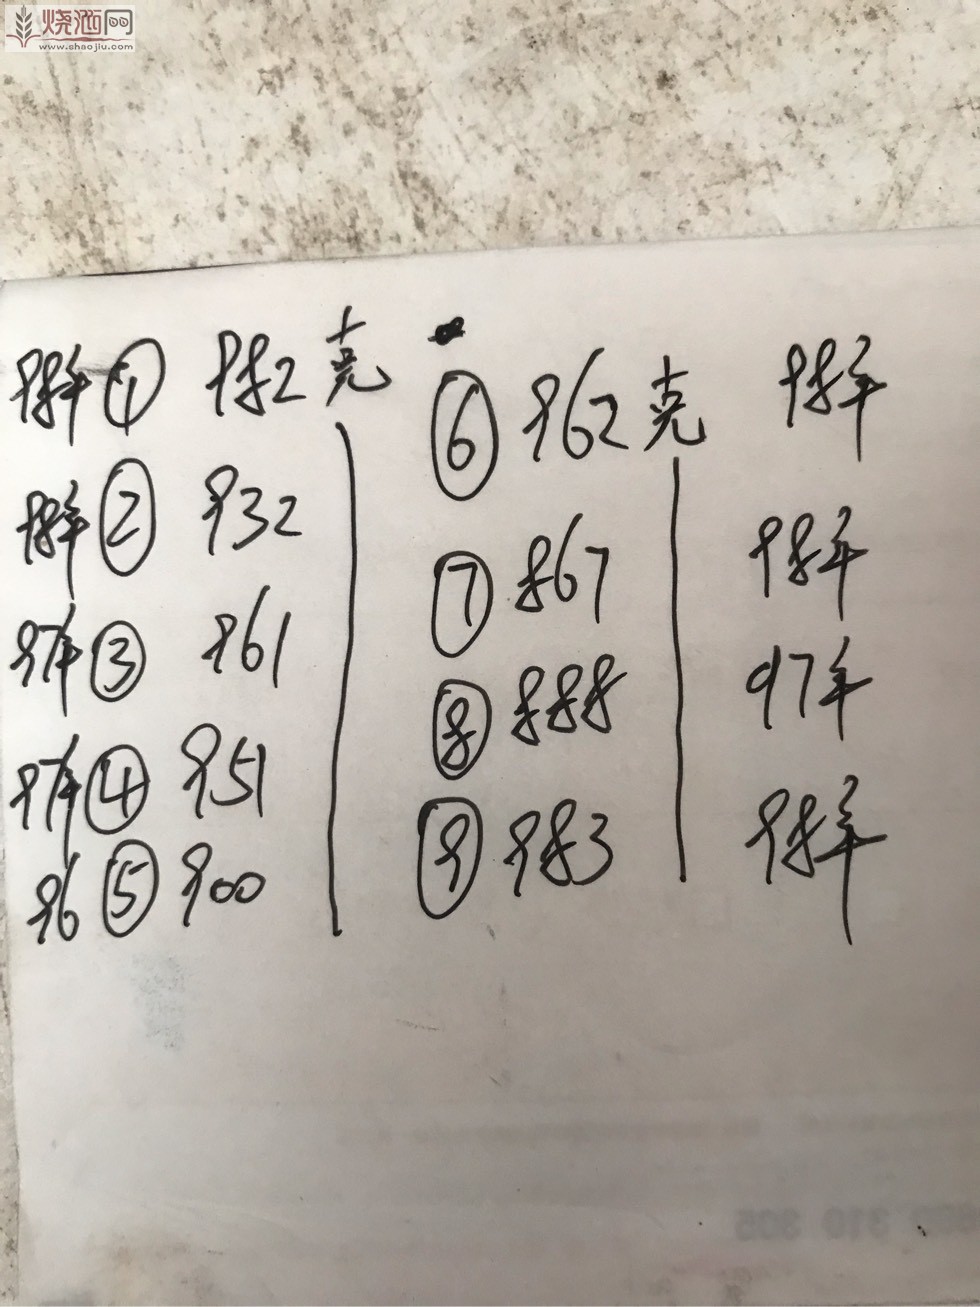 烧酒网
www.shaojiu.com
98年 ① 982克
98年 ② 932
97年 ③ 961
97年 ④ 951
96 ⑤ 900
⑥ 962克 98年
⑦ 867 98年
⑧ 888 97年
⑨ 983 98年
310 305